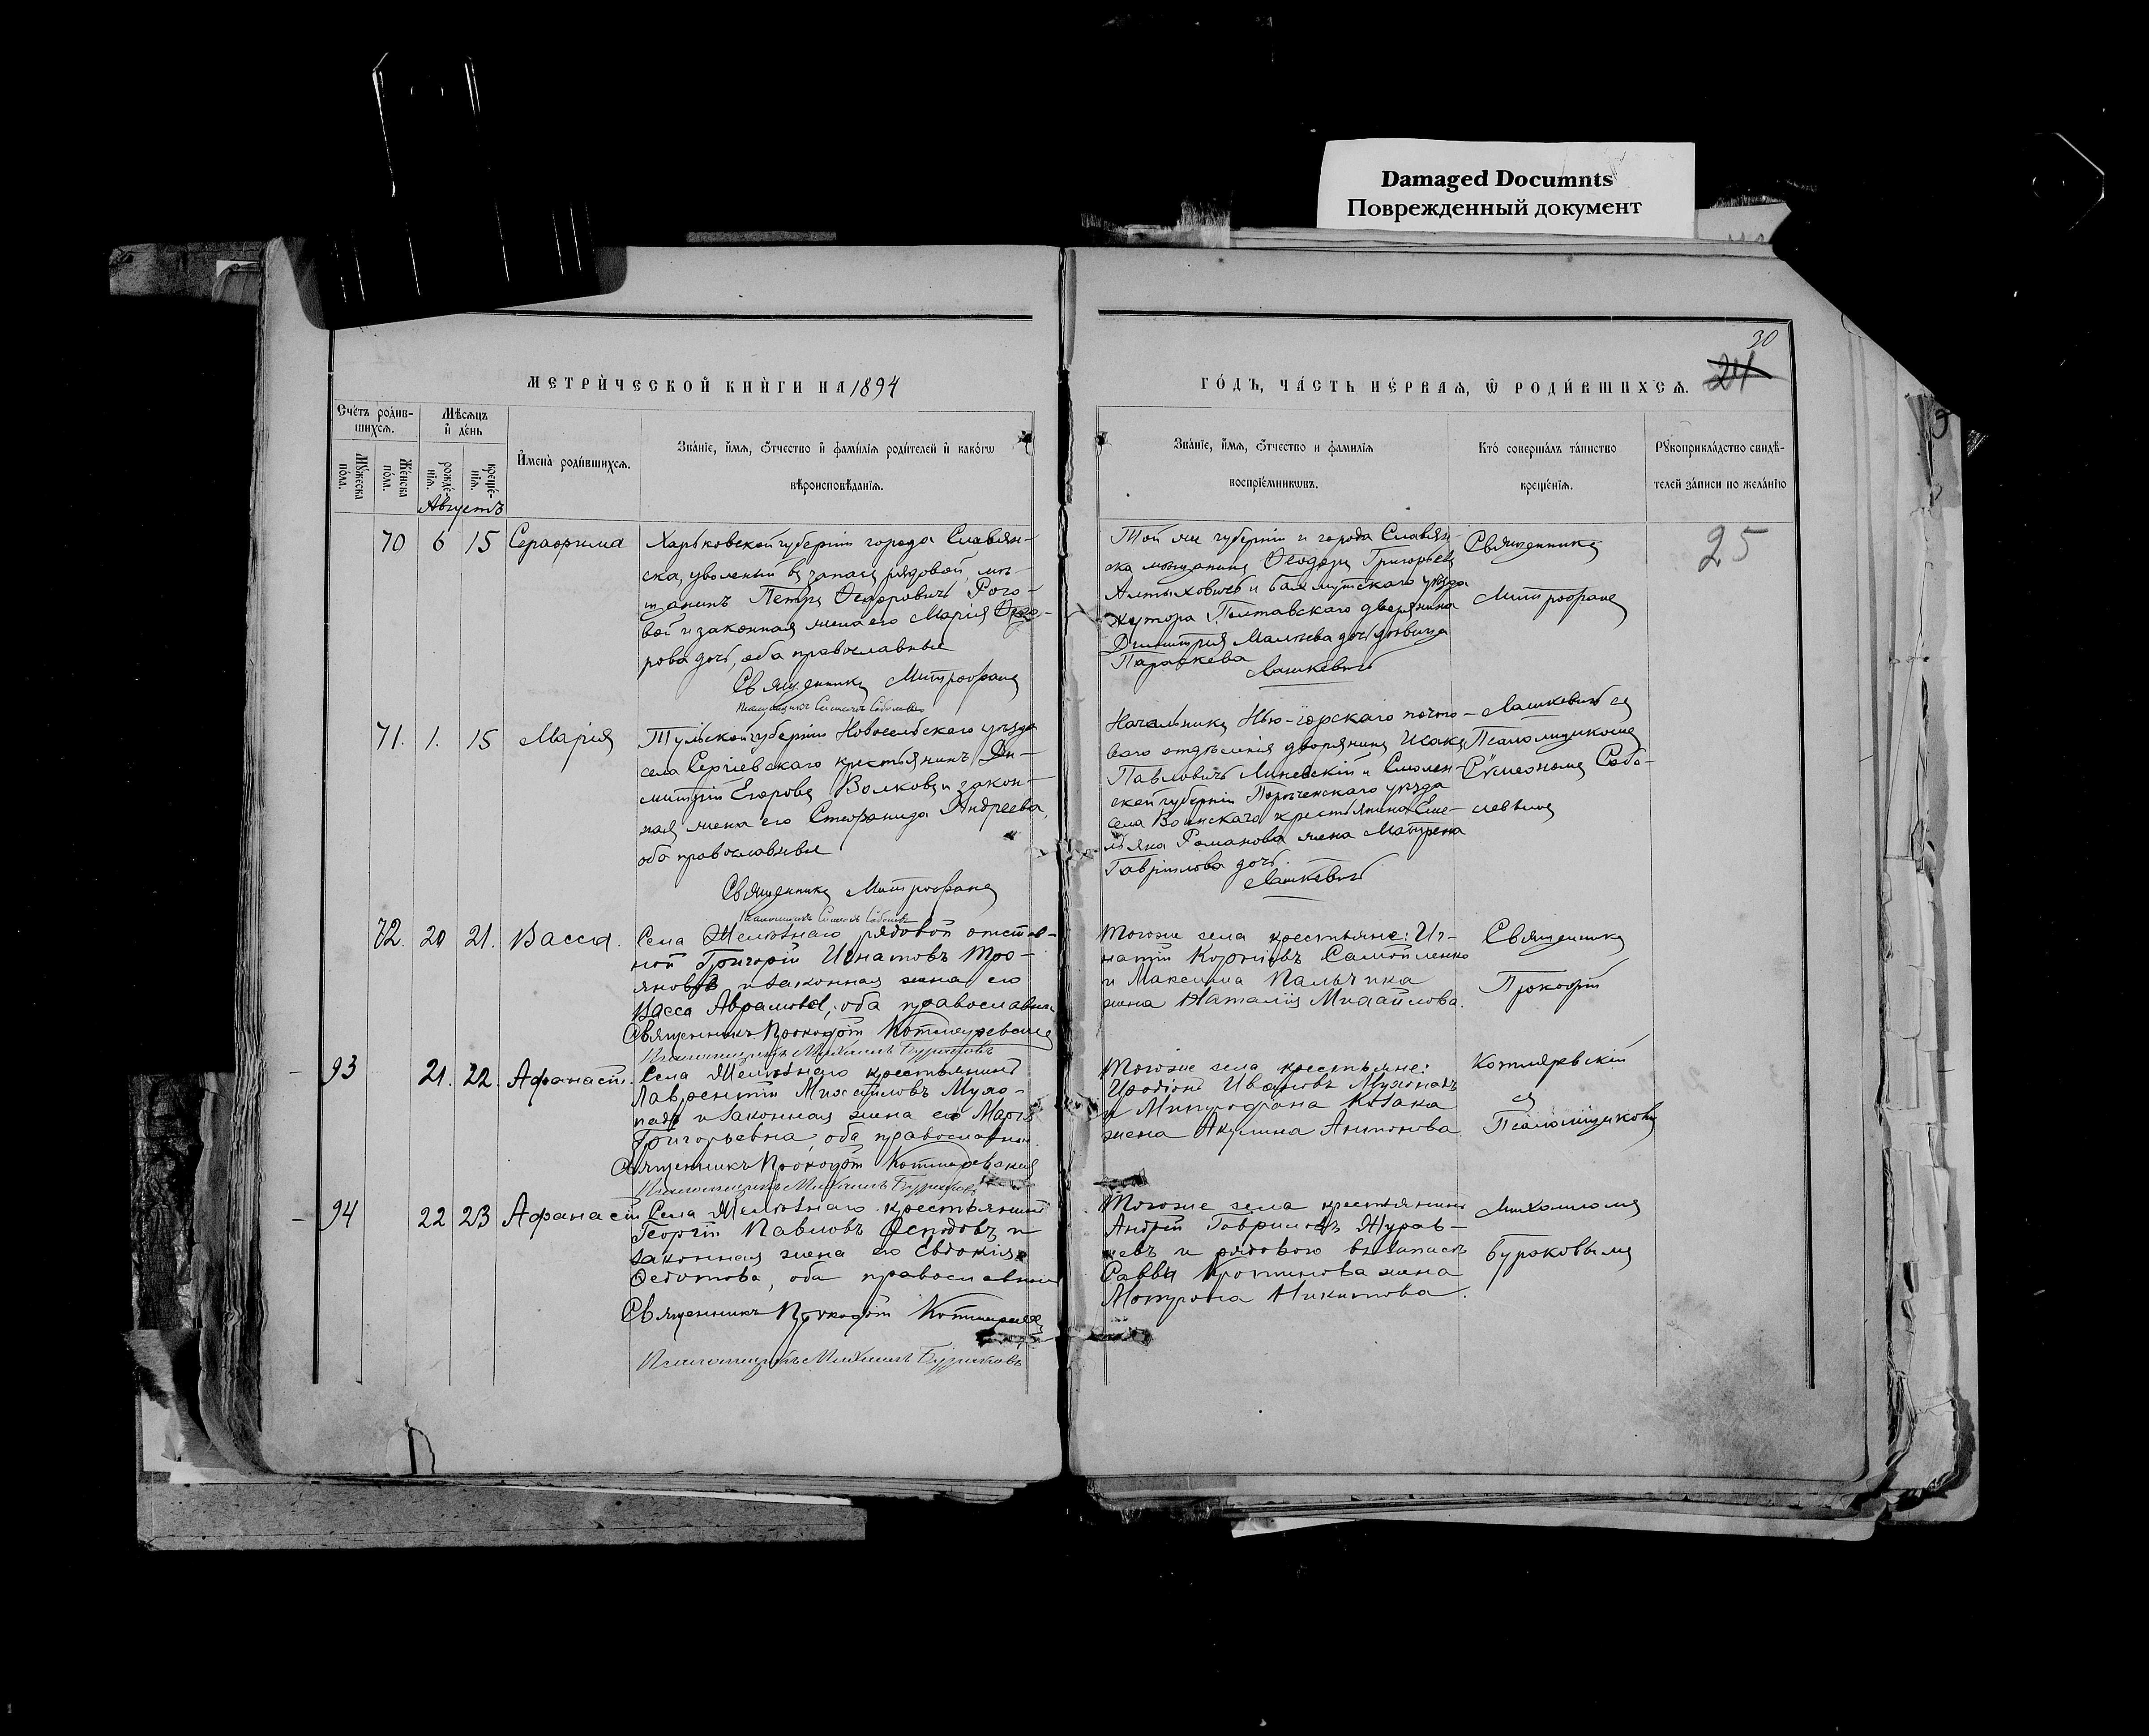 Damaged Documnts
Поврежденный документ
30
24
МЕТРИ́ЧЕСКОЙ КНИ́ГИ НА 1894
ГО́ДЪ, ЧА́СТЬ ПЕ́РВАЯ, Ѡ РОДИ́ВШИХСѦ.
Сче́тъ роди́в-
шихсѧ.
Мѣ́сѧцъ
и҆ де́нь
Мꙋ́жеска
по́ла.
Же́нска
по́ла.
рожде́-
нїѧ.
креще́-
нїѧ.
И҆мена̀ роди́вшихсѧ.
Зва́нїе, и҆́мѧ, ѻ҆́тчество и҆ фами́лїѧ роди́телей и҆ како́гѡ
вѣроисповѣ́данїѧ.
Зва́нїе, и҆́мѧ, ѻ҆́тчество и фами́лїѧ
воспрїе́мникѡвъ.
Кто̀ соверша́лъ та́инство
креще́нїѧ.
Рꙋкоприкла́дство свидѣ́-
телей за́писи по жела́нїю
Августъ
70 6 15 Серафима
Харьковской губерніи города Славян-
ска, уволеный въ запасъ рядовой, мѣ-
щанинъ Петръ Ѳедоровичъ Рого-
вой и законная жена его Марія Ѳедо-
рова дочь, оба православные
Священникъ Митрофанъ
Той же губерніи и города Славян-
ска мѣщанинъ Ѳеодоръ Григорьевъ
и Бахмутскаго уѣзда
хутора Полтавскаго дворянина
Димитрія дочь дѣвица
Параскева
Лашкевичъ
Священникъ
Митрофанъ
25
71. 1. 15 Марія
Тульской губерніи Новосельскаго уѣзда
села Сергіевскаго крестьянинъ Ди-
митрій Егоровъ Волковъ и закон-
ная жена его Стефанида Андреева,
оба православные
Священникъ Митрофанъ
Начальникъ Нью-Іорскаго почто-
ваго отдѣленія дворянинъ Исакъ
Павловичъ и Смолен-
ской губерніи Порѣченскаго уѣзда
села крестьянина Еме-
льяна Романова жена Матрена
Гавріилова дочь.
Лашкевичъ
Лашкевичъ съ
Псаломщикомъ
Сѵмеономъ Собо-
левымъ
72. 20 21. Васса.
Села Желѣзнаго рядовой отстав-
ной Григорій Игнатовъ Тро-
яновъ и законная жена его
Васса Аврамова, оба православные
Священникъ Прокофій Котляревскій
Псаломщикъ Михаилъ Бураковъ
Тогоже села крестьяне: Иг-
натій Корніевъ Самойленко
и Максима Пальчика
жена Наталія Михайлова.
Священникъ
Прокофій
93 21. 22. Афанасій.
Села Желѣзнаго крестьянинъ
Лаврентій Михайловъ Мухо-
падъ и законная жена его Марія
Григорьевна, оба православные.
Священникъ Прокофій Котляревскій
Псаломщикъ Михаилъ Бураковъ
Тогоже села крестьяне:
Иродіонъ Ивановъ Мухопадъ
и Митрофана Козака
жена Акулина Антонова.
Котляревскій
съ
Псаломщикомъ
94 22 23 Афанасій
Села Желѣзнаго крестьянинъ
Георгій Павловъ и
законная жена его Евдокія
Ѳедотова, оба православные
Священникъ Прокофій Котляревскій
Псаломщикъ Михаилъ Бураковъ
Тогоже села крестьянинъ
Андрей Гавриловъ Журав-
левъ и рядового въ запасѣ
Саввы жена
Мотрона Никитова.
Михаиломъ
Бураковымъ